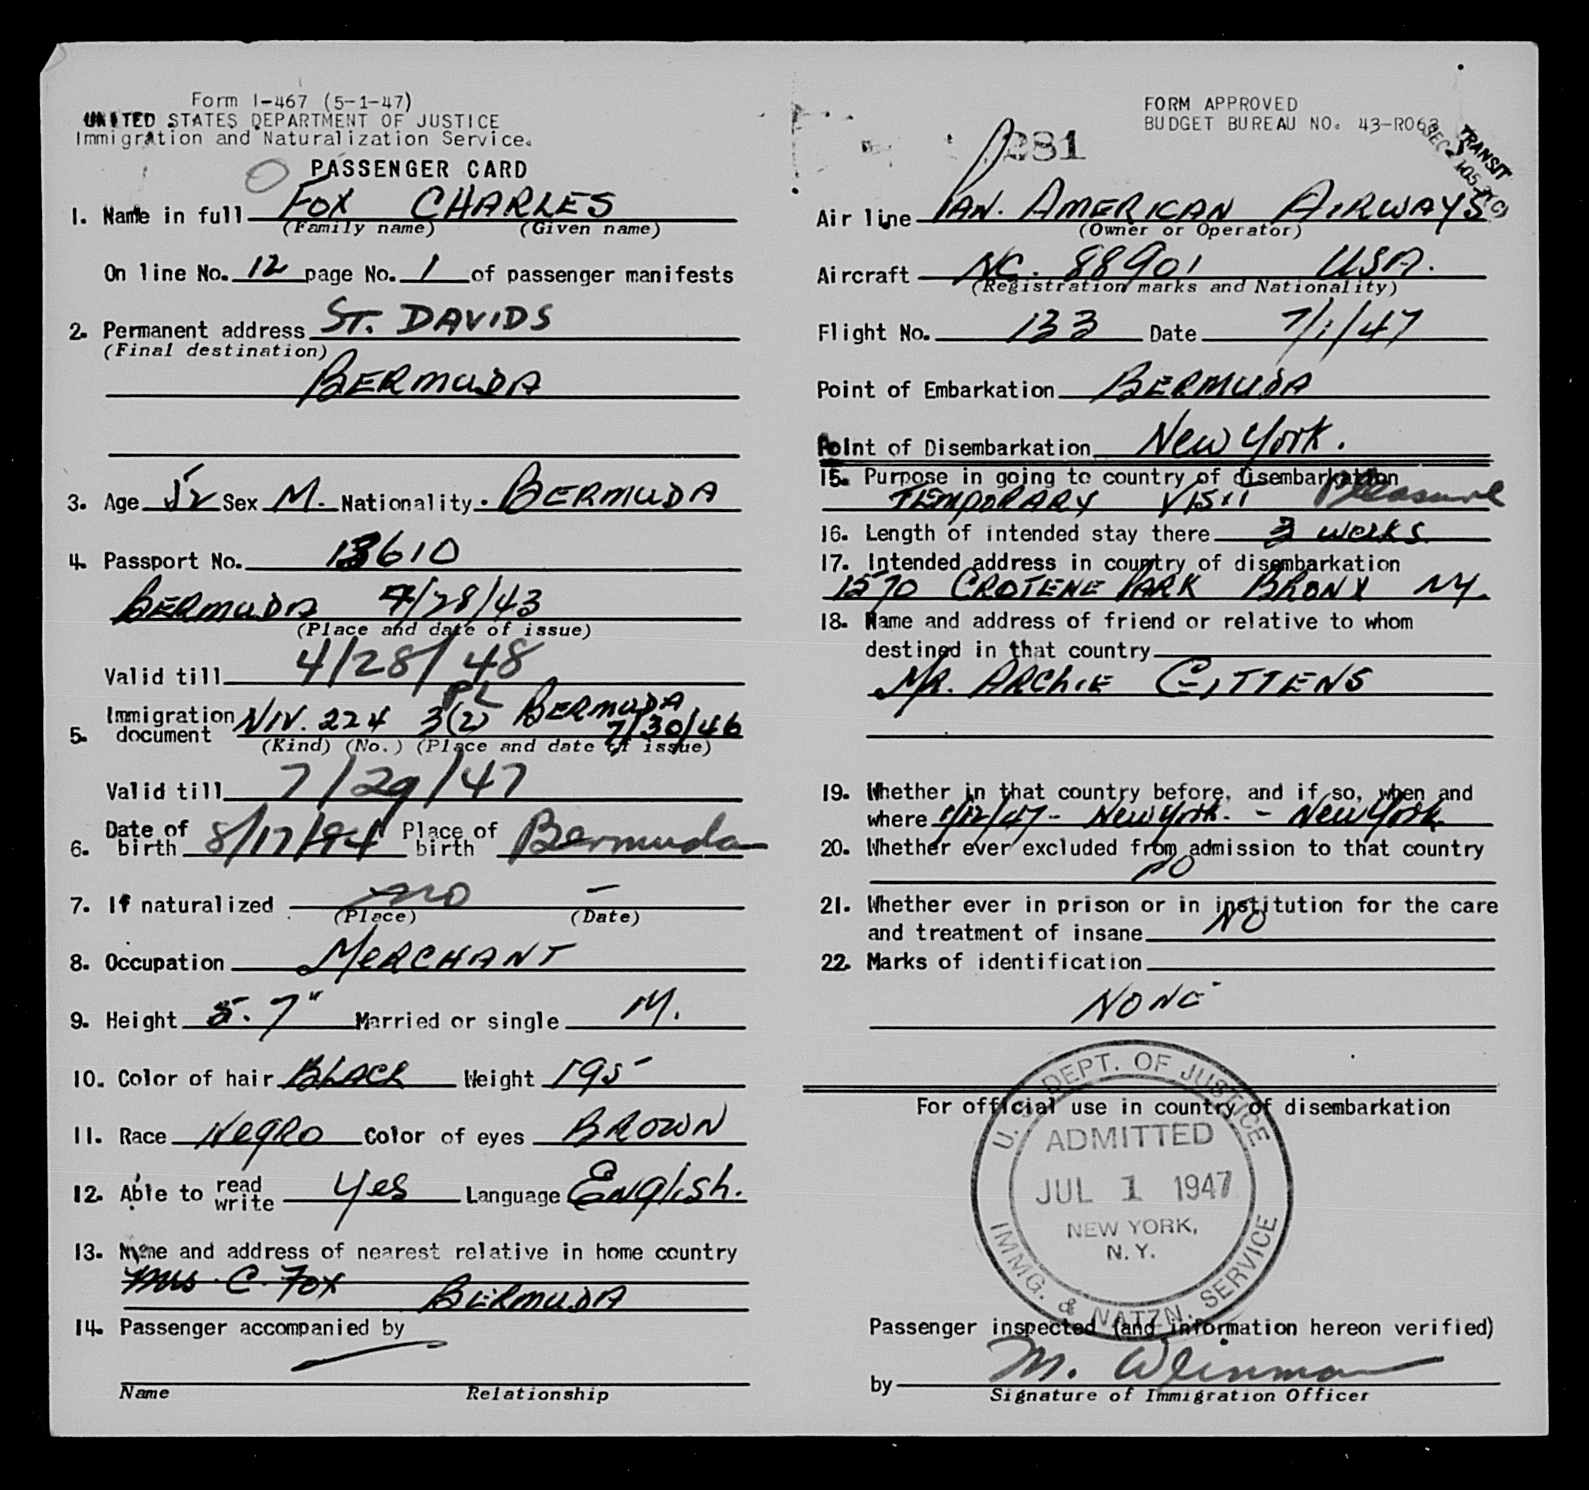 Form I-467 (5-1-47)
UNITED STATES DEPARTMENT OF JUSTICE
Immigration and Naturalization Service.
PASSENGER CARD
1. Name in full FOX CHARLES
(Family name) (Given name)
On line No. 12 page No. 1 of passenger manifests
2. Permanent address ST. DAVIDS
(Final destination)
BERMUDA
3. Age 52 Sex M. Nationality. BERMUDA
4. Passport No. 13610
BERMUDA 4/28/43
(Place and date of issue)
Valid till 4/28/48
5. Immigration document NIV. 224 3(2) PL BERMUDA 7/30/46
(Kind) (No.) (Place and date of issue)
Valid till 7/29/47
6. Date of birth 8/17/94 Place of birth Bermuda
7. If naturalized no –
(Place) (Date)
8. Occupation MERCHANT
9. Height 5.7" Married or single M.
10. Color of hair BLACK Weight 195
11. Race NEGRO Color of eyes BROWN
12. Able to read write yes Language English.
13. Name and address of nearest relative in home country
Mrs. C. Fox BERMUDA
14. Passenger accompanied by
Name Relationship
FORM APPROVED
BUDGET BUREAU NO. 43-R063
TRANSIT
281
Air line PAN. AMERICAN AIRWAYS
(Owner or Operator)
Aircraft NC. 88901 USA.
(Registration marks and Nationality)
Flight No. 133 Date 7/1/47
Point of Embarkation BERMUDA
Point of Disembarkation New York.
15. Purpose in going to country of disembarkation
TEMPORARY VISIT Pleasure
16. Length of intended stay there 3 weeks
17. Intended address in country of disembarkation
1570 CROTENE PARK BRONX NY.
18. Name and address of friend or relative to whom
destined in that country
MR. ARCHIE GITTENS
19. Whether in that country before, and if so, when and
where 1/12/47 - New York. - New York.
20. Whether ever excluded from admission to that country
NO
21. Whether ever in prison or in institution for the care
and treatment of insane NO
22. Marks of identification
NONE
For official use in country of disembarkation
U. S. DEPT. OF JUSTICE
ADMITTED
JUL 1 1947
NEW YORK,
N.Y.
IMMG. & NATZN. SERVICE
Passenger inspected (and information hereon verified)
by M. Weinman
Signature of Immigration Officer